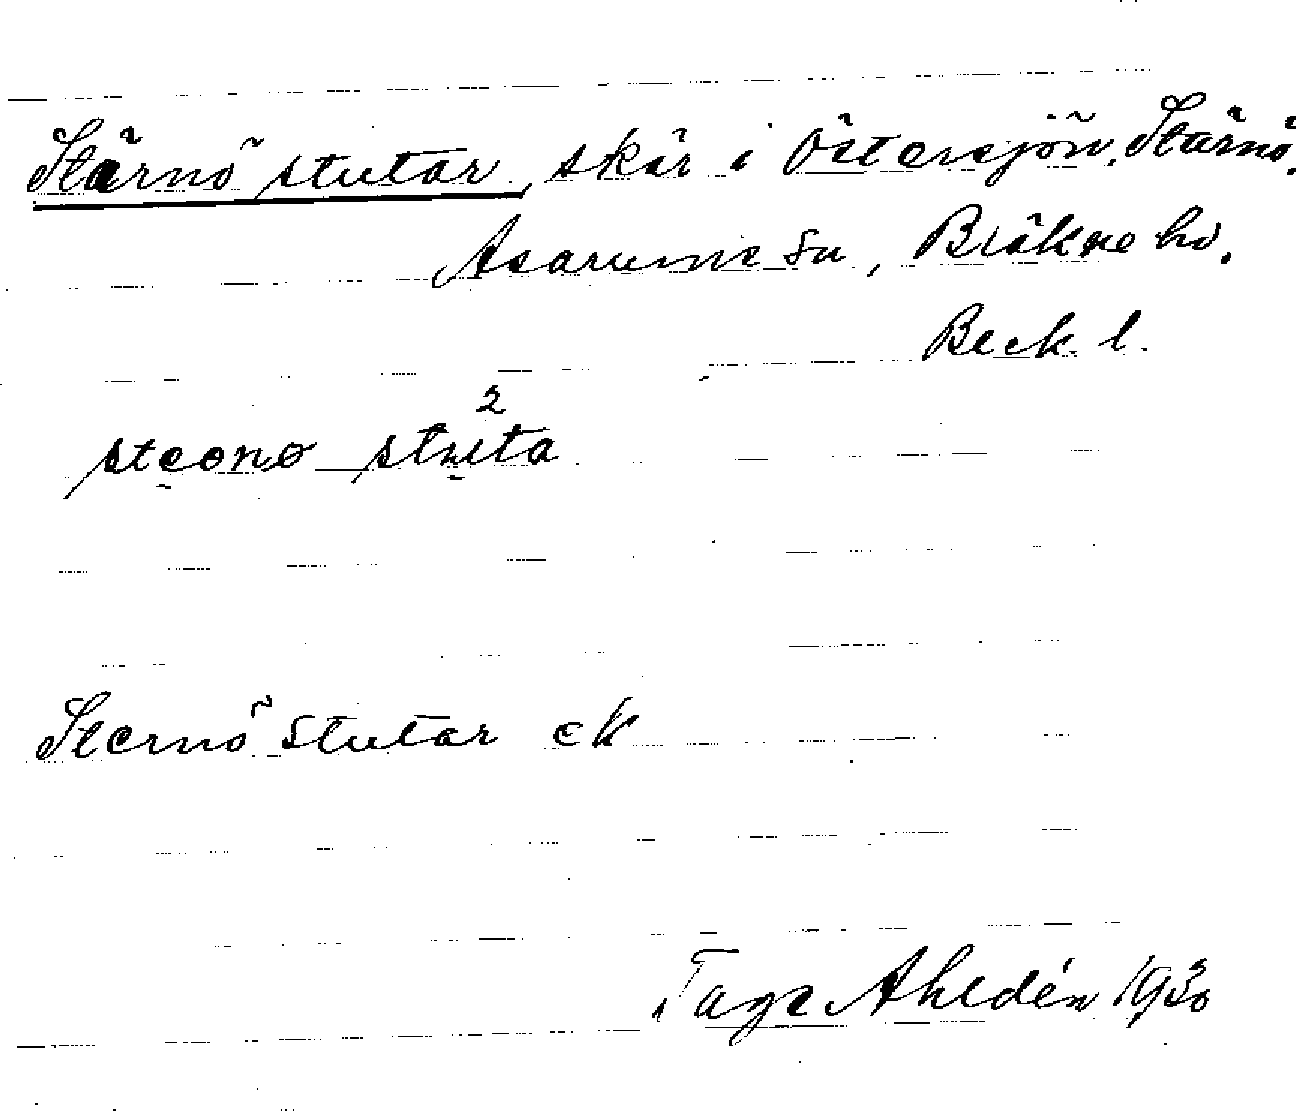 Stärnö stutar, skär i Östersjön. Stärnö.
Asarums sn, Bräkne hd.
Beck. l.
Sternö stutar ek
Tage Ahldén 1930